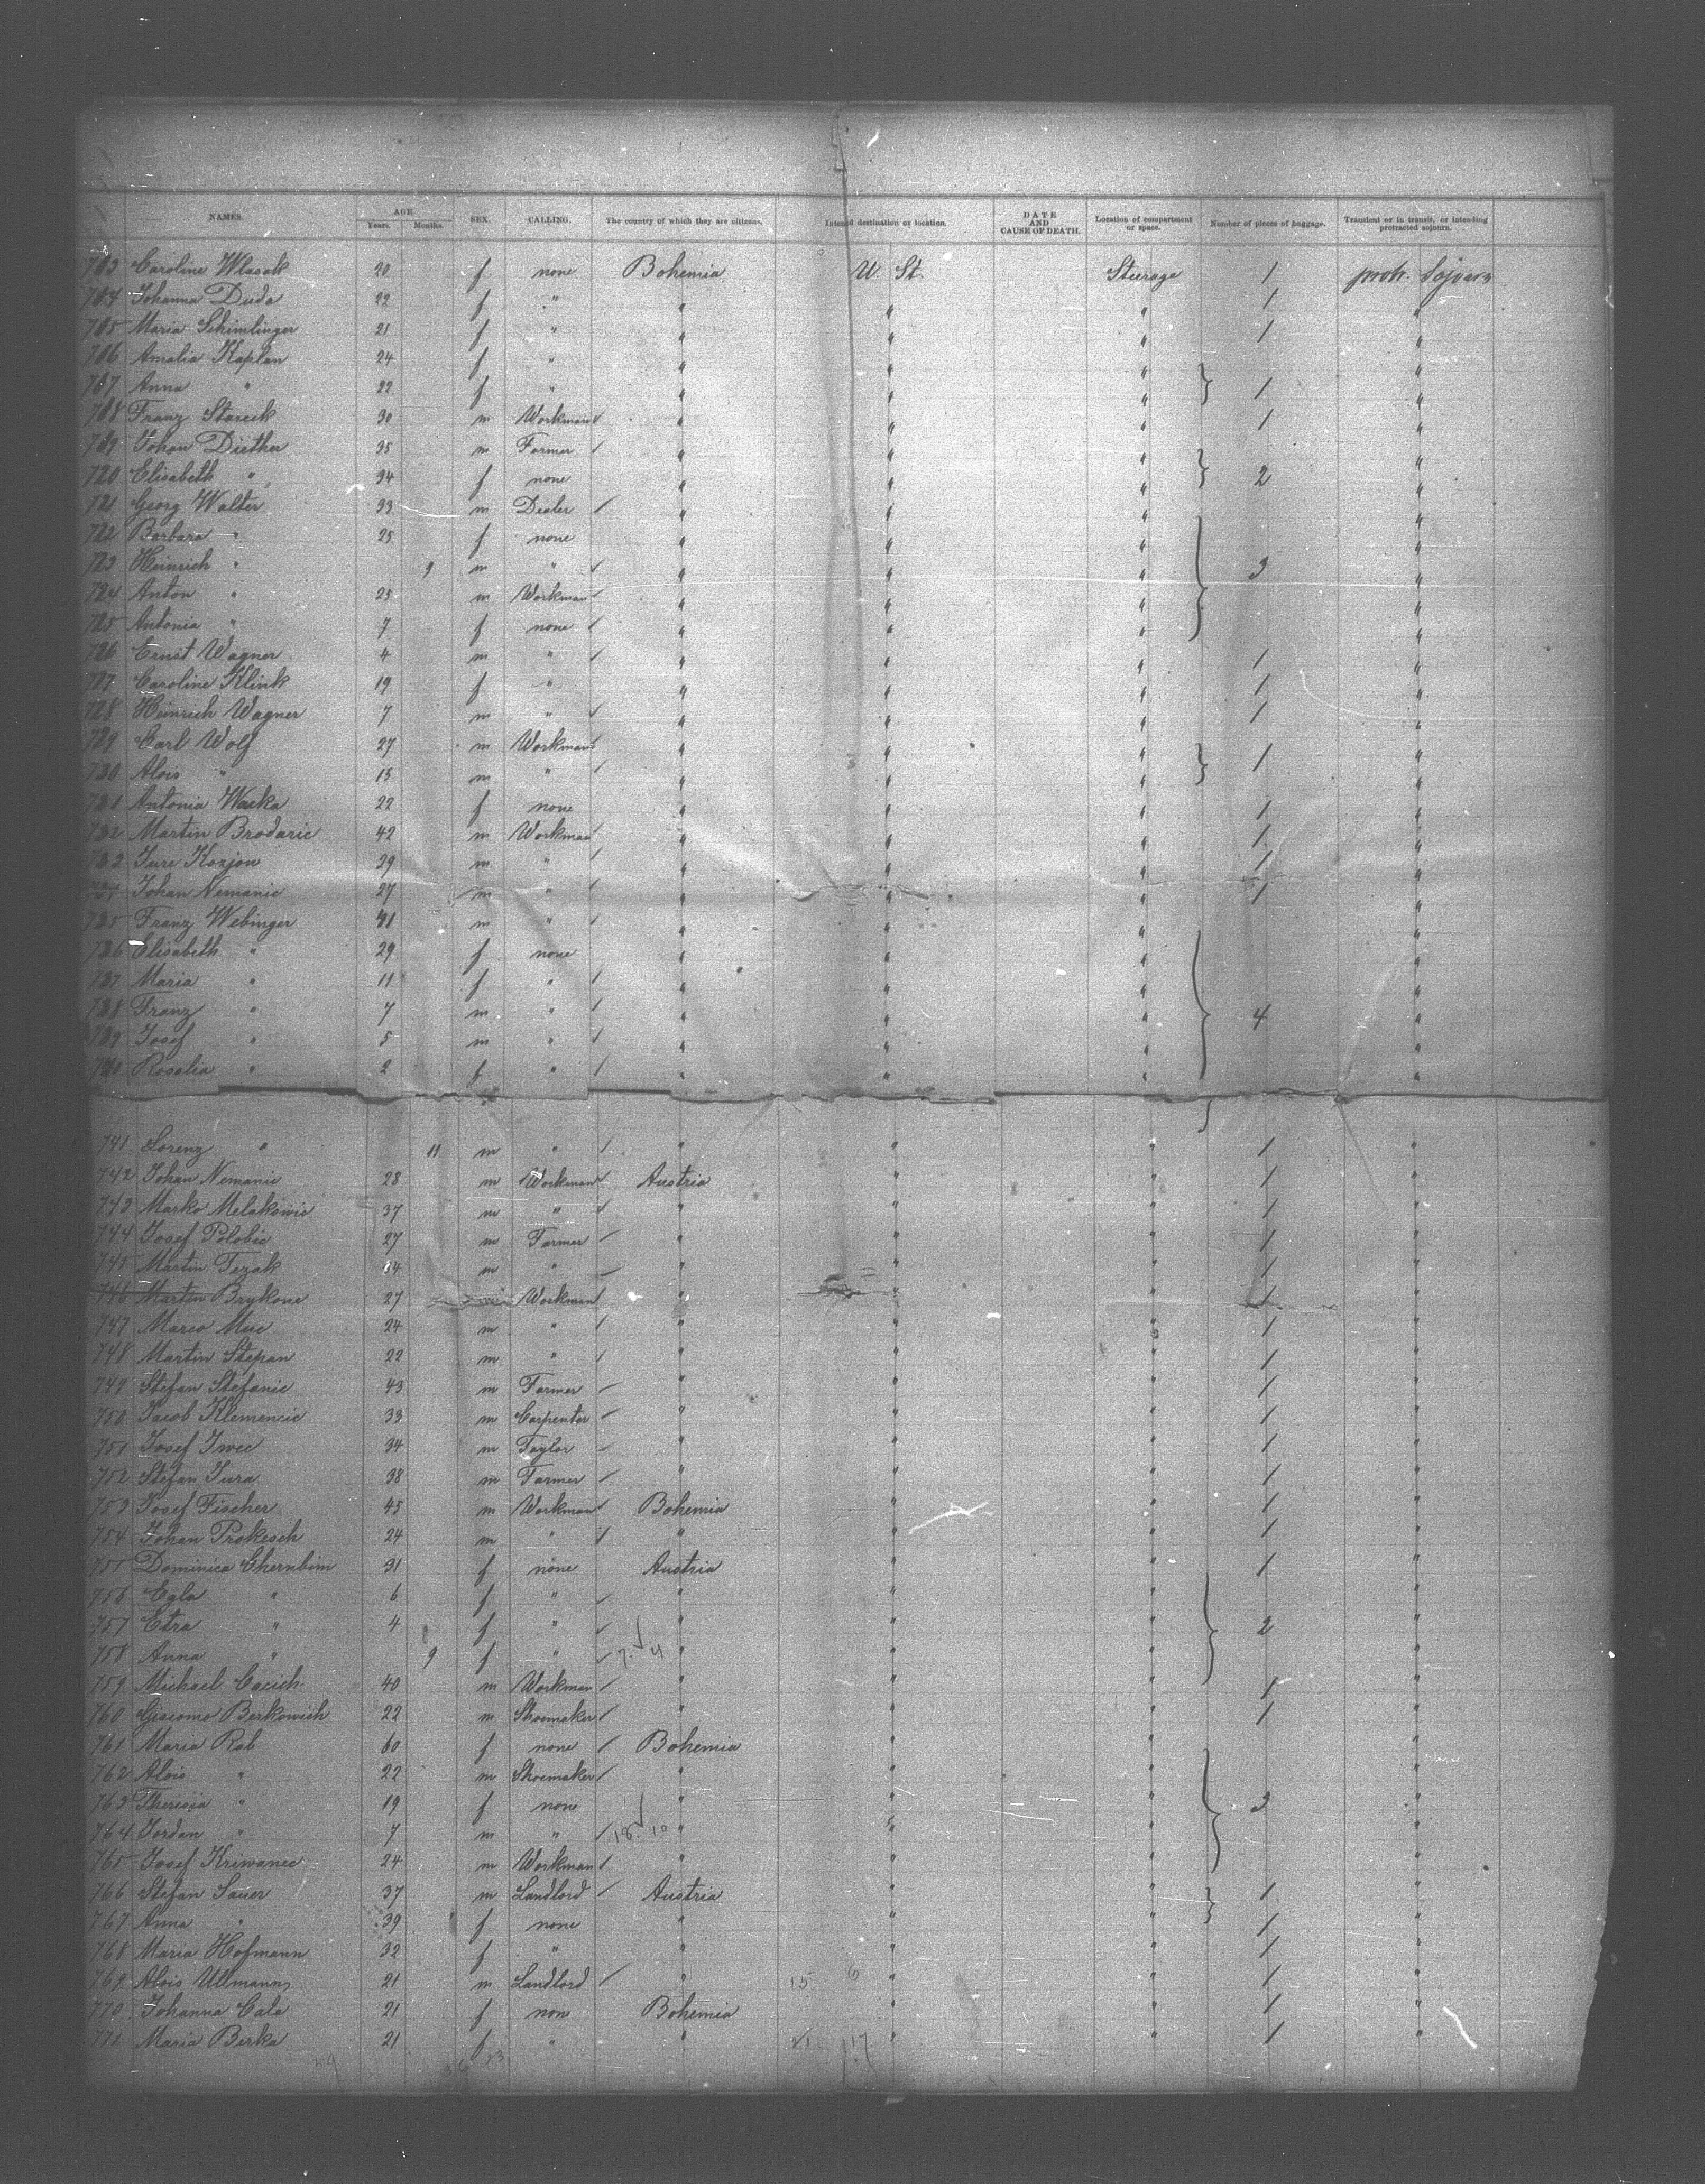 NAMES. AGE. Years. Months. SEX. CALLING. The country of which they are citizens. Intend destination or location. DATE AND CAUSE OF DEATH. Location of compartment or space. Number of pieces of baggage. Transient or in transit, or intending protracted sojourn.
713 Caroline Wlasak 20 f none Bohemia U. St. Steerage 1 protr. Sojourn
714 Johanna Duda 22 f " " " " 1 "
715 Maria Schimlinger 21 f " " " " 1 "
716 Amalia Kaplan 24 f " " " " "
717 Anna " 22 f " " " " } 1 "
718 Franz Stareck 30 m Workman " " " 1 "
719 Johan Diether 35 m Farmer " " " "
720 Elisabeth " 34 f none " " " } 2 "
721 Georg Walter 33 m Dealer " " " "
722 Barbara " 25 f none " " " "
723 Heinrich " 9 m " " " " } 3 "
724 Anton " 25 m Workman " " " "
725 Antonia " 7 f none " " " "
726 Ernst Wagner 4 m " " " " 1 "
727 Caroline Klink 19 f " " " " 1 "
728 Heinrich Wagner 7 m " " " " 1 "
729 Carl Wolf 27 m Workman " " " "
730 Alois " 15 m " " " " } 1 "
731 Antonia Wacka 22 f none " " " 1 "
732 Martin Brodaric 42 m Workman " " " 1 "
733 Jure Kozjon 29 m " " " " 1 "
734 Johan Nemanic 27 m " " " " 1 "
735 Franz Webinger 41 m " " " " "
736 Elisabeth " 29 f none " " " "
737 Maria " 11 f " " " " "
738 Franz " 7 m " " " " } 4 "
739 Josef " 5 m " " " " "
740 Rosalia " 2 f " " " " "
741 Lorenz " 11 m " " " " 1 "
742 Johan Nemanic 28 m Workman Austria " " 1 "
743 Marko Melakowic 37 m " " " " 1 "
744 Josef Polobic 27 m Farmer " " " 1 "
745 Martin Tezak 34 m " " " " 1 "
746 Martin Brykovc 27 Workman " " " 1 "
747 Marco Muc 24 m " " " " 1 "
748 Martin Stepan 22 m " " " " 1 "
749 Stefan Stefanic 43 m Farmer " " " 1 "
750 Jacob Klemencic 33 m Carpenter " " " 1 "
751 Josef Ivec 34 m Taylor " " " 1 "
752 Stefan Jura 38 m Farmer " " " 1 "
753 Josef Fischer 45 m Workman Bohemia " " 1 "
754 Johan Prokesch 24 m " " " " 1 "
755 Dominica Chernbim 31 f none Austria " " 1 "
756 Egla " 6 f " " " " "
757 Etra " 4 f " " " " } 2 "
758 Anna " 9 f " 7. 4 " " " "
759 Michael Cacich 40 m Workman " " " 1 "
760 Giacomo Berkowich 22 m Shoemaker " " " 1 "
761 Maria Rab 60 f none Bohemia " " "
762 Alois " 22 m Shoemaker " " " "
763 Theresia " 19 f none " " " } 3 "
764 Jordan " 7 m " 18. 10 " " " "
765 Josef Kriwanec 24 m Workman " " " "
766 Stefan Sauer 37 m Landlord Austria " " } 1 "
767 Anna " 39 f none " " " 1 "
768 Maria Hofmann 32 f " " " " 1 "
769 Alois Ullmann 21 m Landlord " 15 6 " " 1 "
770 Johanna Cala 21 f non Bohemia " " 1 "
771 Maria Berka 21 f " " " " 1 "